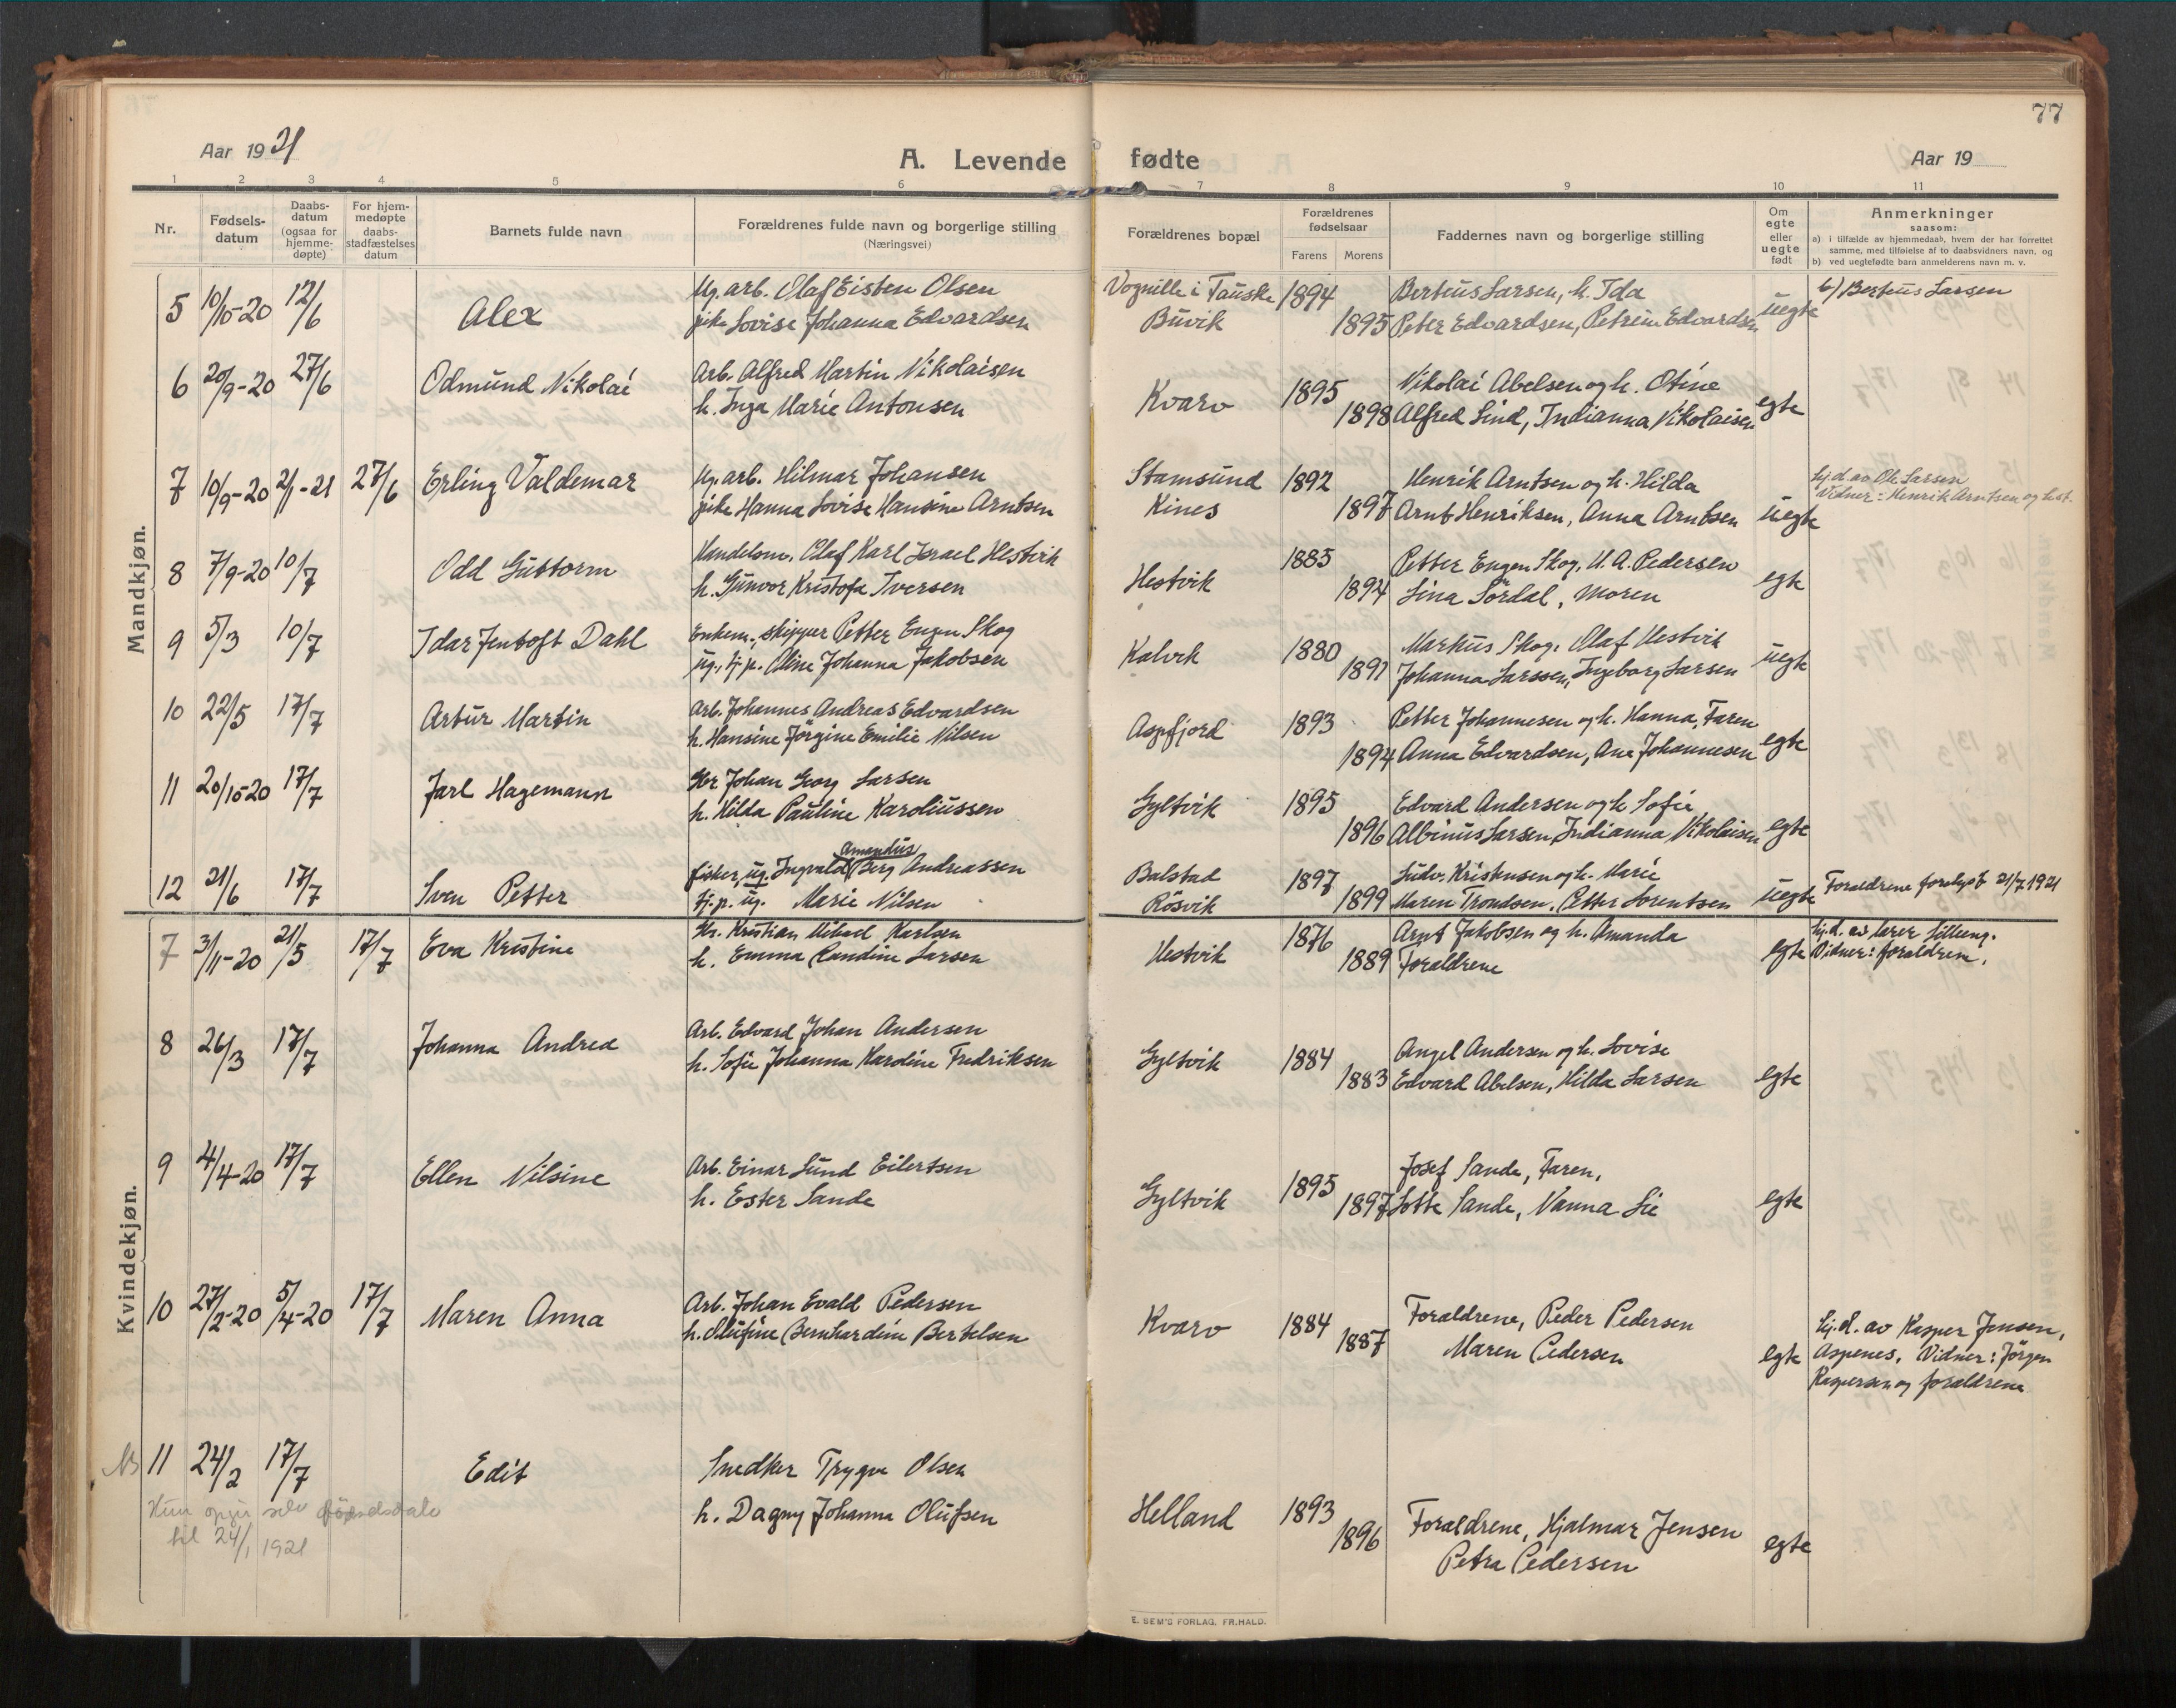 77
Aar 1921
A. Levende fødte
Aar 19
1 2 3 4 5 6 7 8 9 10 11
Nr.
Fødselsdatum
Daabsdatum (ogsaa for hjemmedøpte)
For hjemmedøpte daabsstadfæstelses datum
Barnets fulde navn
Forældrenes fulde navn og borgerlige stilling
(Næringsvei)
Forældrenes bopæl
Forældrenes fødselsaar
Farens Morens
Faddernes navn og borgerlige stilling
Om egte eller uegte født
Anmerkninger
saasom:
a) i tilfælde av hjemmedaab, hvem der har forrettet
samme, med tilføielse af to daabsvidners navn, og
b) ved uegtefødte barn anmelderens navn m. v.
Mandkjøn.
5 10/10-20 12/6 Alex
Ug. arb. Olaf Eisten Olsen
pike Lovise Johanna Edvardsen
Vognille i Fauske
Buvik
1894
1895
Berteus Larsen, h. Ida
Peter Edvardsen, Petrine Edvardsen
uegte
b) Berteus Larsen
6 20/9-20 27/6 Odmund Nikolai
Arb. Alfred Martin Nikolaisen
h. Inga Marie Antonsen
Kvarv
1895
1898
Nikolai Abelsen og h. Otine
Alfred Lind, Indianna Nikolaisen
egte
7 10/9-20 2/1-21 27/6 Erling Valdemar
Ug. arb. Hilmar Johansen
pike Hanna Lovise Hansine Arntsen
Stamsund
Kines
1892
1897
Henrik Arntsen og h. Hilda
Arnt Henriksen, Anna Arntsen
uegte
hj.d. av Ole Larsen
Vidner: Henrik Arntsen og hust.
8 7/9-20 10/7 Odd Guttorm
Handelsm. Olaf Karl Israel Hestvik
h. Gunvor Kristofa Iversen
Hestvik
1885
1894
Petter Eugen Skog, U. A. Pedersen
Lina Sørdal, Moren
egte
9 5/3 10/7 Idar Jentoft Dahl
Enkem., skipper Petter Eugen Skog
ug., tj.p. Oline Johanna Jakobsen
Kalvik
1880
1891
Markus Skog, Olaf Hestvik
Johanna Larssen, Ingeborg Larsen
uegte
10 22/5 17/7 Artur Martin
Arb. Johannes Andreas Edvardsen
h. Hansine Jørgine Emilie Nilsen
Aspfjord
1893
1894
Petter Johannesen og h. Hanna, Faren
Anna Edvardsen, Ane Johannesen
egte
11 20/10-20 17/7 Jarl Hagemann
Gbr Johan Georg Larsen
h. Hilda Pauline Karoliussen
Gyltvik
1895
1896
Edvard Andersen og h. Sofie
Albinus Larsen, Indianna Nikolaisen
egte
12 21/6 17/7 Sven Petter
Amandus
fisker, ug. Ingvald Berg Andreassen
tj.p. ug. Marie Nilsen
Balstad
Røsvik
1897
1899
Ludv. Kristensen og h. Marie
Maren Trondsen, Petter Lorentsen
uegte
Foraldrene forelyst 21/7 1921
Kvindekjøn.
7 3/11-20 21/5 17/7 Eva Kristine
Gbr. Kristian Mikael Karlsen
h. Emma Randine Larsen
Hestvik
1876
1889
Arnt Jakobsen og h. Amanda
Foraldrene
egte
hj.d. av lærer
Vidner: foraldrene.
8 26/3 17/7 Johanna Andrea
Arb. Edvard Johan Andersen
h. Sofie Johanna Karoline Fredriksen
Gyltvik
1884
1883
Angel Andersen og h. Lovise
Edvard Abelsen, Hilda Larsen
egte
9 4/4-20 17/7 Ellen Nilsine
Arb. Einar Lund Eilertsen
h. Ester Sande
Gyltvik
1895
1897
Josef Sande, Faren,
Lotte Sande, Nanna Lie
egte
10 27/2-20 5/4-20 17/7 Maren Anna
Arb. Johan Evald Pedersen
h. Olufine Bernhardine Bertelsen
Kvarv
1884
1887
Foraldrene, Peder Pedersen
Maren Pedersen
egte
hj.d. av Kasper Jensen,
Aspenes. Vidner: Jørgen
Kaspersen og foraldrene
NB 11 24/2 17/7 Edit
Snedker Trygve Olsen
h. Dagny Johanna Olufsen
Helland
1893
1896
Foraldrene, Hjalmar Jensen
Petra Pedersen
egte
Hun opgir selv fødselsdato
til 24/1 1921
E. SEM'S FORLAG, FR.HALD.